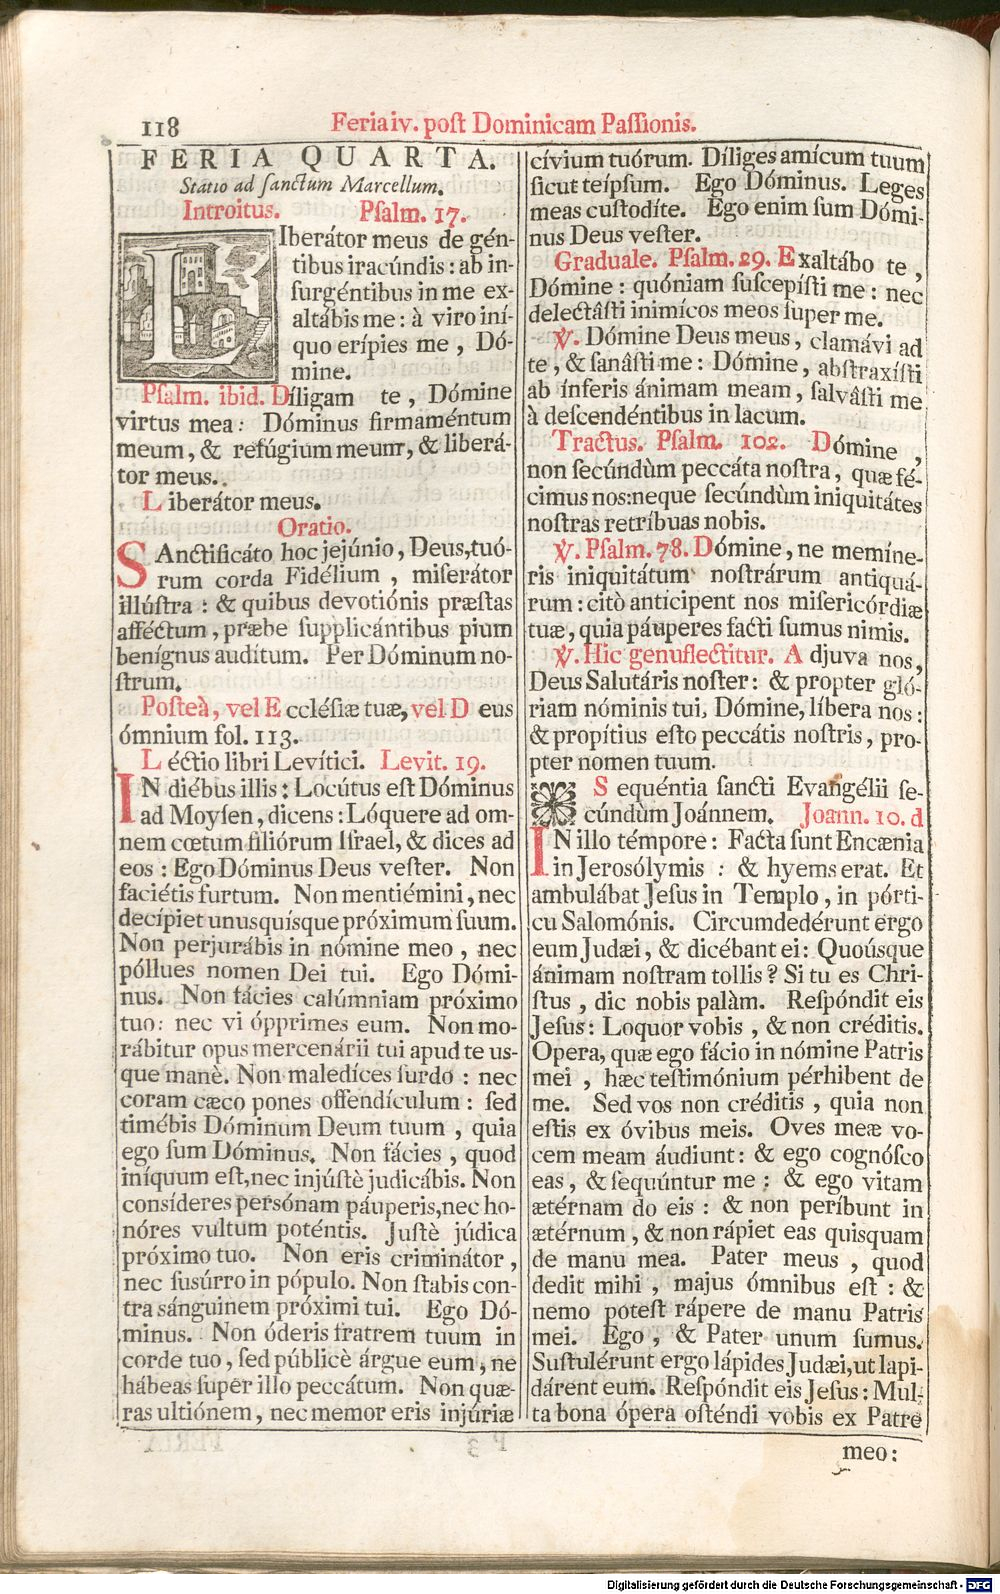 118
Feria iv. post Dominicam Passionis.
FERIA QUARTA.
Statio ad sanctum Marcellum.
Introitus. Psalm. 17.
LIberátor meus de gén-
tibus iracúndis: ab in-
surgéntibus in me ex-
altábis me: à viro iní-
quo erípies me, Dó-
mine.
Psalm. ibid. Díligam te, Dómine
virtus mea: Dóminus firmaméntum
meum, & refúgium meum, & liberá-
tor meus.
Liberátor meus.
Oratio.
SAnctificáto hoc jejúnio, Deus, tuó-
rum corda Fidélium, miserátor
illústra: & quibus devotiónis præstas
afféctum, præbe supplicántibus pium
benígnus audítum. Per Dóminum no-
strum.
Posteà, vel Ecclésiæ tuæ, vel Deus
ómnium fol. 113.
Léctio libri Levítici. Levit. 19.
IN diébus illis: Locútus est Dóminus
ad Moysen, dicens: Lóquere ad om-
nem cœtum filiórum Israel, & dices ad
eos: Ego Dóminus Deus vester. Non
faciétis furtum. Non mentiémini, nec
decípiet unusquísque próximum suum.
Non perjurábis in nómine meo, nec
póllues nomen Dei tui. Ego Dómi-
nus. Non fácies calúmniam próximo
tuo: nec vi ópprimes eum. Non mo-
rábitur opus mercenárii tui apud te us-
que manè. Non maledíces surdo: nec
coram cæco pones offendículum: sed
timébis Dóminum Deum tuum, quia
ego sum Dóminus. Non fácies, quod
iníquum est, nec injústè judicábis. Non
consíderes persónam páuperis, nec ho-
nóres vultum poténtis. Justè júdica
próximo tuo. Non eris criminátor,
nec susúrro in pópulo. Non stabis con-
tra sánguinem próximi tui. Ego Dó-
minus. Non óderis fratrem tuum in
corde tuo, sed públicè árgue eum, ne
hábeas super illo peccátum. Non quæ-
ras ultiónem, nec memor eris injúriæ
cívium tuórum. Díliges amícum tuum
sicut teípsum. Ego Dóminus. Leges
meas custodíte. Ego enim sum Dómi-
nus Deus vester.
Graduale. Psalm. 29. Exaltábo te,
Dómine: quóniam suscepísti me: nec
delectâsti inimícos meos super me.
℣. Dómine Deus meus, clamávi ad
te, & sanâsti me: Dómine, abstraxísti
ab ínferis ánimam meam, salvâsti me
à descendéntibus in lacum.
Tractus. Psalm. 102. Dómine,
non secúndùm peccáta nostra, quæ fé-
cimus nos: neque secúndùm iniquitátes
nostras retríbuas nobis.
℣. Psalm. 78. Dómine, ne memíne-
ris iniquitátum nostrárum antiquá-
rum: citò antícipent nos misericórdiæ
tuæ, quia páuperes facti sumus nimis.
℣. Hic genuflectitur. Adjuva nos,
Deus Salutáris noster: & propter gló-
riam nóminis tui, Dómine, líbera nos:
& propítius esto peccátis nostris, pro-
pter nomen tuum.
Sequéntia sancti Evangélii se-
cúndùm Joánnem. Joann. 10. d
IN illo témpore: Facta sunt Encænia
in Jerosólymis: & hyems erat. Et
ambulábat Jesus in Templo, in pórti-
cu Salomónis. Circumdedérunt ergo
eum Judæi, & dicébant ei: Quoúsque
ánimam nostram tollis? Si tu es Chri-
stus, dic nobis palàm. Respóndit eis
Jesus: Loquor vobis, & non créditis.
Opera, quæ ego fácio in nómine Patris
mei, hæc testimónium pérhibent de
me. Sed vos non créditis, quia non
estis ex óvibus meis. Oves meæ vo-
cem meam áudiunt: & ego cognósco
eas, & sequúntur me: & ego vitam
ætérnam do eis: & non períbunt in
ætérnum, & non rápiet eas quisquam
de manu mea. Pater meus, quod
dedit mihi, majus ómnibus est: &
nemo potest rápere de manu Patris
mei. Ego, & Pater unum sumus.
Sustulérunt ergo lápides Judæi, ut lapi-
dárent eum. Respóndit eis Jesus: Mul-
ta bona ópera osténdi vobis ex Patre
meo:
Digitalisierung gefördert durch die Deutsche Forschungsgemeinschaft - DFG